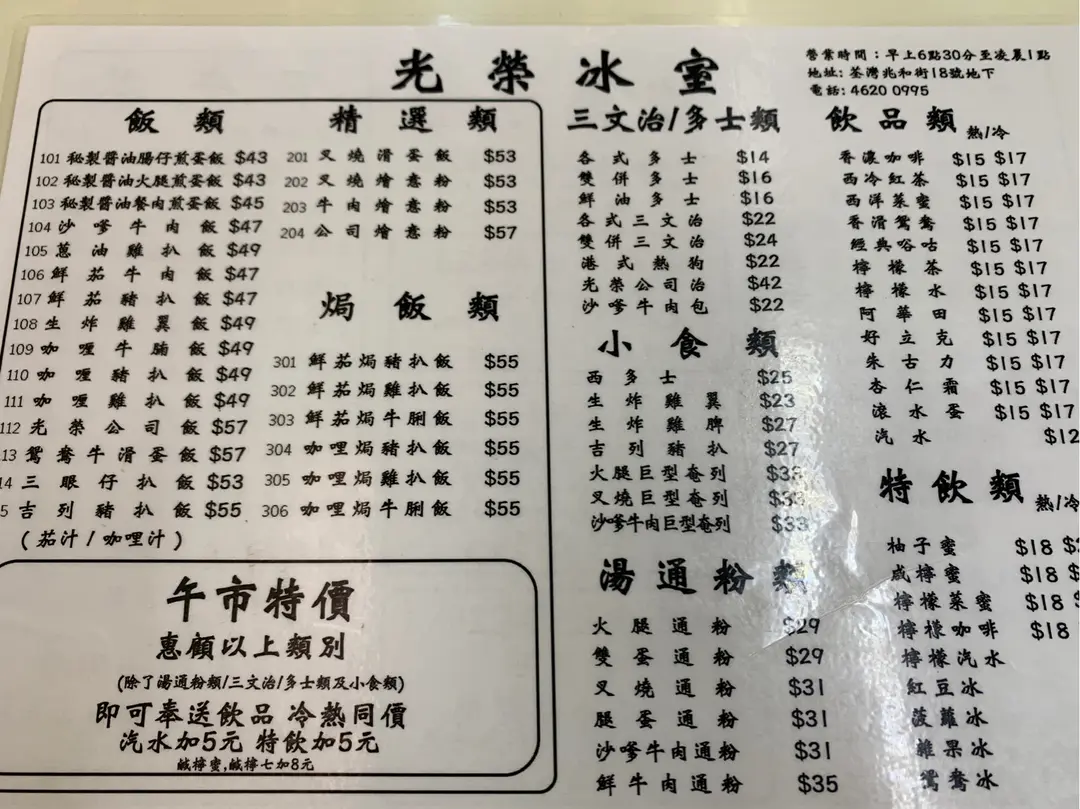 光榮冰室
營業時間：早上6點30分至凌晨1點
地址: 荃灣兆和街18號地下
電話: 4620 0995
飯類
101 秘製醬油腸仔煎蛋飯 $43
102 秘製醬油火腿煎蛋飯 $43
103 秘製醬油餐肉煎蛋飯 $45
104 沙嗲牛肉飯 $47
105 蔥油雞扒飯 $49
106 鮮茄牛肉飯 $47
107 鮮茄豬扒飯 $47
108 生炸雞翼飯 $49
109 咖喱牛腩飯 $49
110 咖喱豬扒飯 $49
111 咖喱雞扒飯 $49
112 光榮公司飯 $57
13 鴛鴦牛滑蛋飯 $57
14 三眼仔扒飯 $53
5 吉列豬扒飯 $55
(茄汁/咖哩汁)
精選類
201 叉燒滑蛋飯 $53
202 叉燒燴意粉 $53
203 牛肉燴意粉 $53
204 公司燴意粉 $57
焗飯類
301 鮮茄焗豬扒飯 $55
302 鮮茄焗雞扒飯 $55
303 鮮茄焗牛脷飯 $55
304 咖哩焗豬扒飯 $55
305 咖哩焗雞扒飯 $55
306 咖哩焗牛脷飯 $55
午市特價
惠顧以上類別
(除了湯通粉類/三文治/多士類及小食類)
即可奉送飲品 冷熱同價
汽水加5元 特飲加5元
鹹檸蜜,鹹檸七加8元
三文治/多士類
各式多士 $14
雙併多士 $16
鮮油多士 $16
各式三文治 $22
雙併三文治 $24
港式熱狗 $22
光榮公司治 $42
沙嗲牛肉包 $22
小食類
西多士 $25
生炸雞翼 $23
生炸雞脾 $27
吉列豬扒 $27
火腿巨型奄列 $33
叉燒巨型奄列 $33
沙嗲牛肉巨型奄列 $33
湯通粉類
火腿通粉 $29
雙蛋通粉 $29
叉燒通粉 $31
腿蛋通粉 $31
沙嗲牛肉通粉 $31
鮮牛肉通粉 $35
飲品類 熱/冷
香濃咖啡 $15 $17
西冷紅茶 $15 $17
西洋菜蜜 $15 $17
香滑鴛鴦 $15 $17
經典唂咕 $15 $17
檸檬茶 $15 $17
檸檬水 $15 $17
阿華田 $15 $17
好立克 $15 $17
朱古力 $15 $17
杏仁霜 $15 $17
滾水蛋 $15 $17
汽水 $12
特飲類 熱/冷
柚子蜜 $18
咸檸蜜 $18
檸檬菜蜜 $18
檸檬咖啡 $18
檸檬汽水
紅豆冰
菠蘿冰
雜果冰
鴛鴦冰